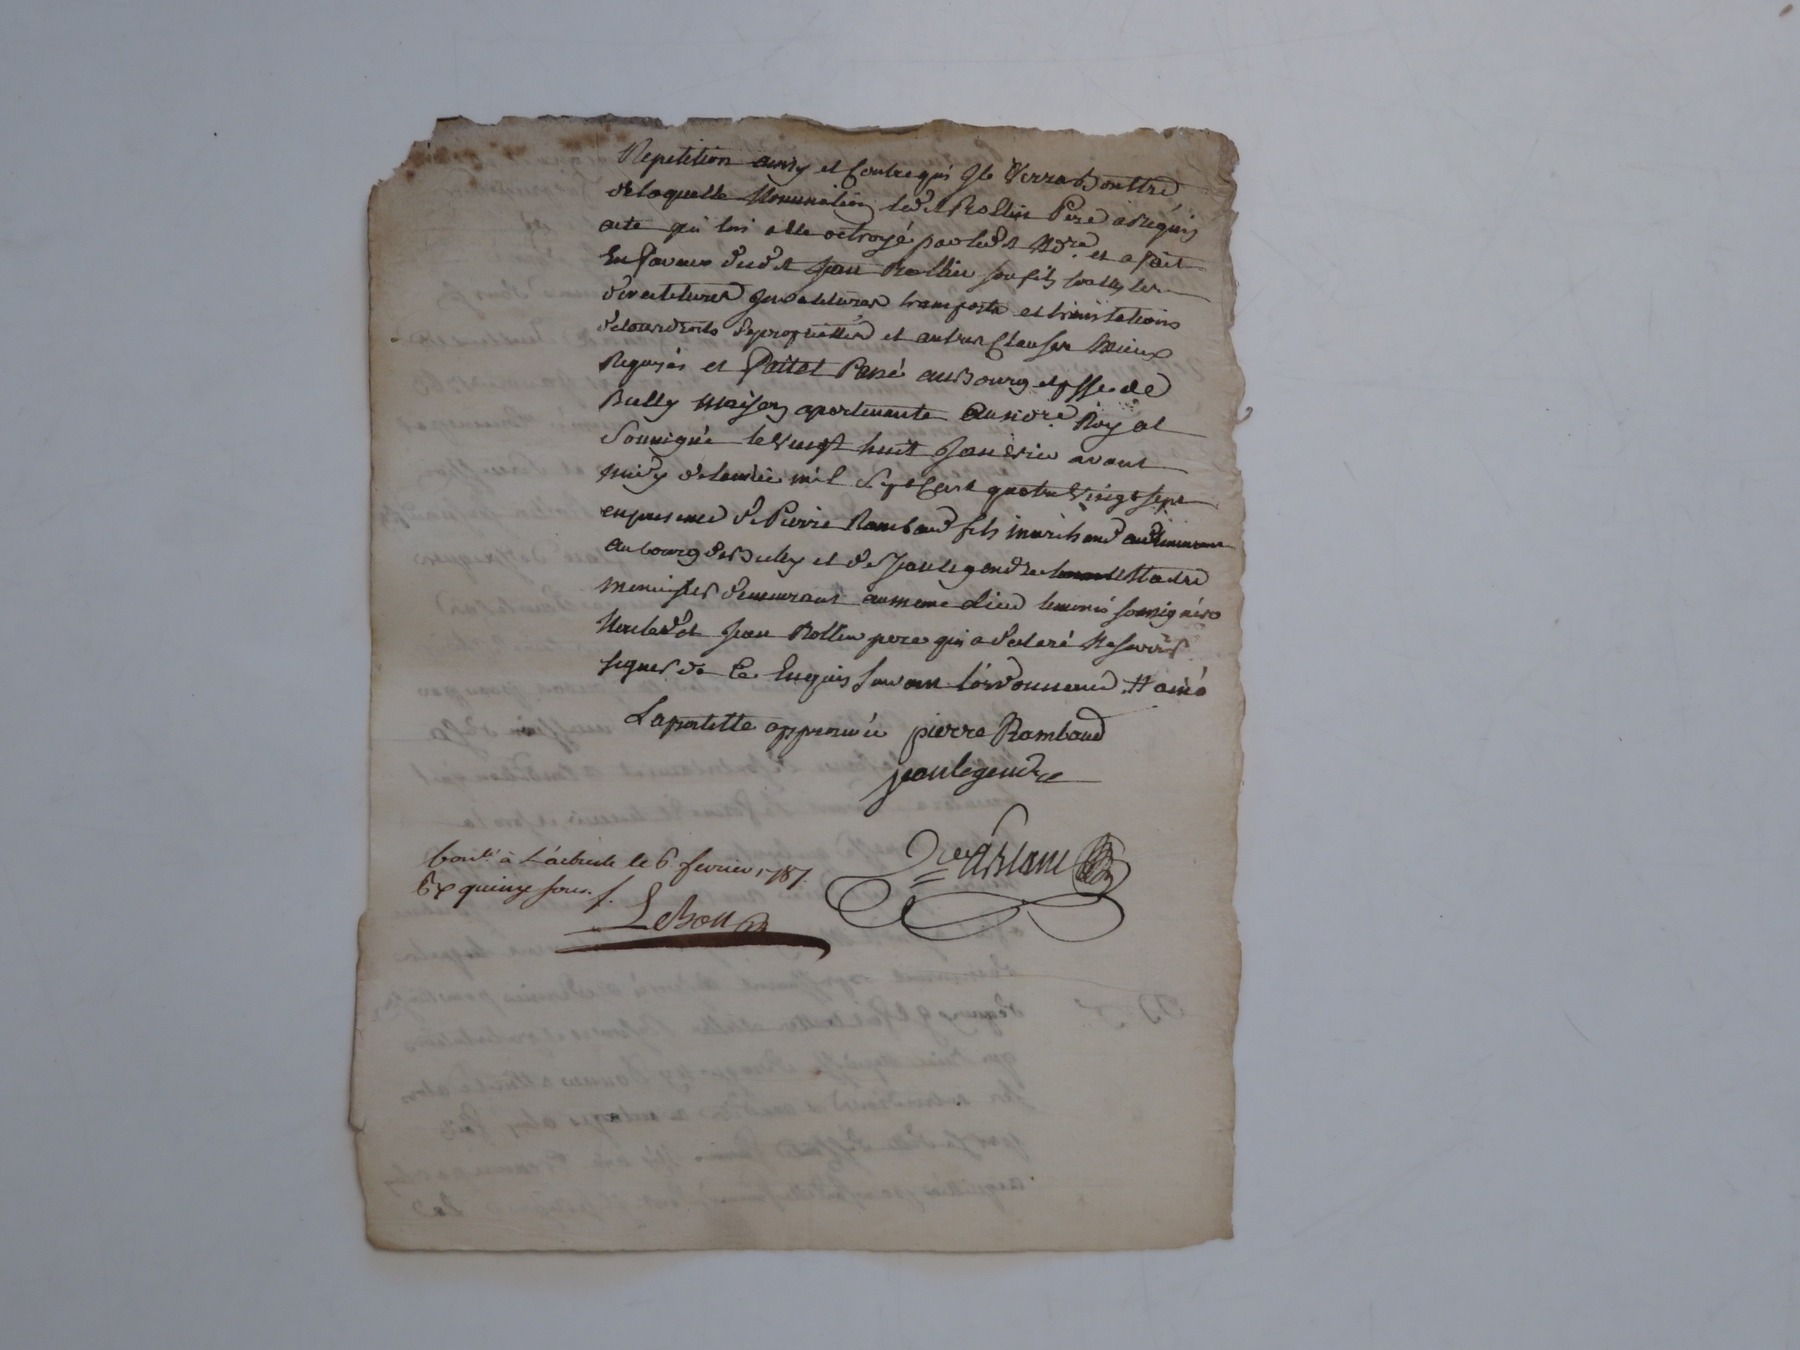 Repetition ainsy et Contre qui Il Verra Bon Etre
de laquelle Nomination led.t Rollin Pere a Requis
acte qui lui a ete octroyé par led.t No.re et a fait
En faveur dud.t Jean Rollin son fils toutes les
devetitures Invetitures transports et trimitations
de tous droits de proprietté et autres Clauses Mieux
Requises et fait et Passé au Bourg et psse de
Bully Maison apartenante Au no.re Royal
Soussigné le Vingt huit Janvier avant
midy de lannée mil Sept Cent quatre Vingt Sept
en presence de Pierre Rambaud fils marchand
au bourg de Bully et de Jean legendre Maitre
Menuisier demeurant au meme Lieu temoins soussignés
Non led.t Jean Rollin pere qui a declaré Ne savoir
signer de Ce Enquis suivant l'ordonnance #ainé
Lapostille approuvée pierre Rambaud
jean legendre
Cont.lé à L'arbresle le 6 fevrier 1787.
quinze sous.
LeBon